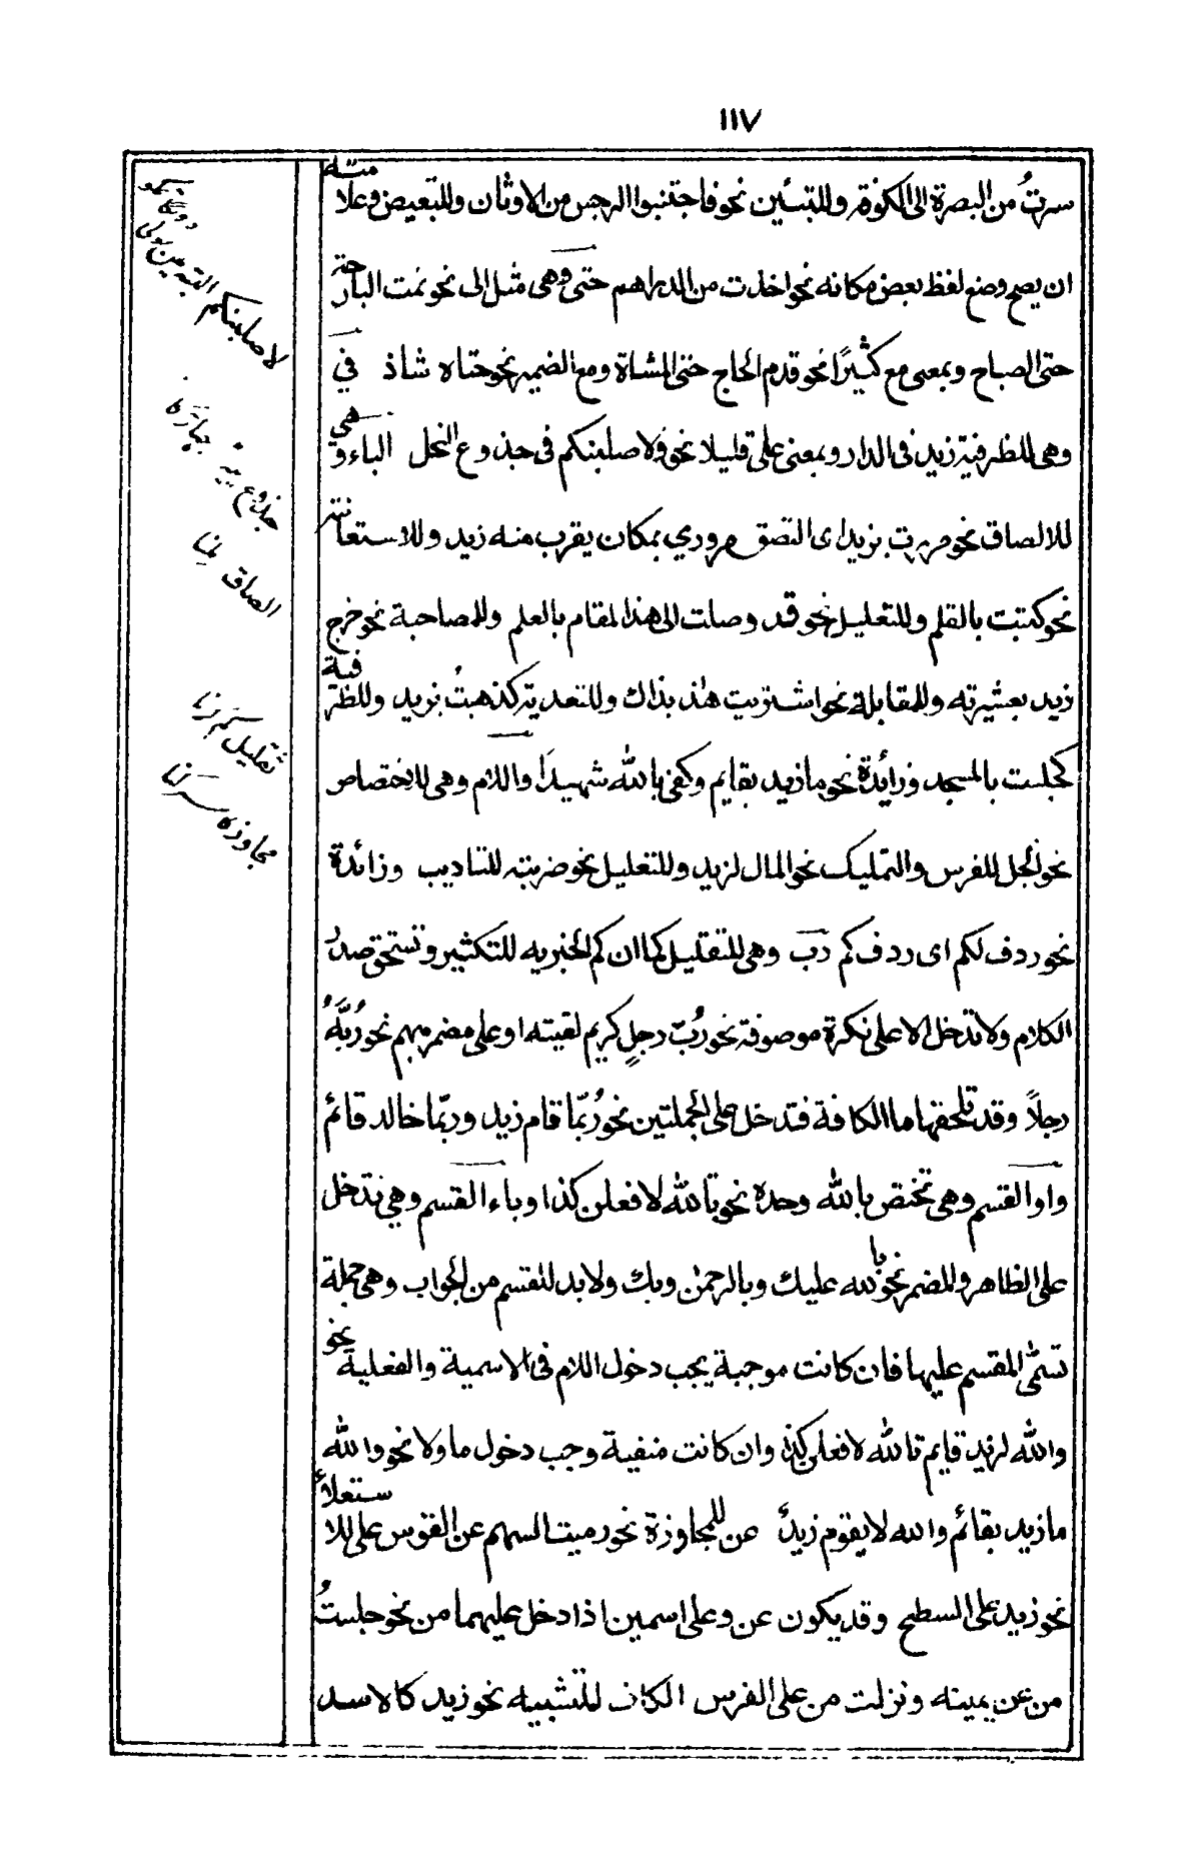 ١١٧
سرتُ من البصرة الى الكوفة وللتبيين نحو فاجتنبوا الرجس من الاوثان وللتبعيض وعلامته
ان يصح وضع لفظ بعض مكانه نحو اخذت من الدراهم حتى وهى مثل الى نحو نمت البارحة
حتى الصباح وبمعنى مع كثيرًا نحو قدم الحاج حتى المشاة ومع الضمير نحو حتاه شاذ في
وهى للظرفية زيد فى الدار وبمعنى على قليلا نحو ولاصلبنكم فى جذوع النخل الباء وهي
للالصاق نحو مررت بزيد اى التصق مروري بمكان يقرب منه زيد وللاستعانته
نحو كتبت بالقلم وللتعليل نحو قد وصلت الى هذا المقام بالعلم وللمصاحبة نحو خرج
زيد بعشيرته وللمقابلة نحو اشتريت هذا بذاك وللتعدية كذهبتُ بزيد وللظرفية
كجلست بالمسجد وزائدة نحو ما زيد بقايم وكفى بالله شهيدًا واللام وهى للاختصاص
نحو الجل للفرس والتمليك نحو المال لزيد وللتعليل نحو ضربته للتاديب وزائدة
نحو ردف لكم اى ردفكم رب وهى للتقليل كما ان كم الخبريه للتكثير وتستحق صدر
الكلام ولا تدخل الا على نكرة موصوفة نحو رُبّ رجلٍ كريم لقيته او على مضمر مبهم نحو رُبَّهُ
رجلاً وقد تلحقها ما الكافة فتدخل على الجملتين نحو رُبّما قام زيد وربّما خالد قائم
واو القسم وهى تختص بالله وحده نحو تالله لافعلن كذا وباء القسم وهي تدخل
على الظاهر والمضمر نحو بالله عليك وبالرحمن وبك ولابد للقسم من الجواب وهى جملة
تسمّى المقسم عليها فان كانت موجبة يجب دخول اللام فى الاسمية والفعلية نحو
والله لزيد قايم تالله لافعلن كذا وان كانت منفية وجب دخول ما ولا نحو والله
ما زيد بقائم والله لا يقوم زيدٌ عن للمجاوزة نحو رميت السهم عن القوس على للاستعلاء
نحو زيد على السطح وقد يكون عن وعلى اسمين اذا دخل عليهما من نحو جلستُ
من عن يمينه ونزلت من على الفرس الكاف للتشبيه نحو زيد كالاسد
لاصلبنكم البته
جذوع
الصاق
تقليل
مجاوزه